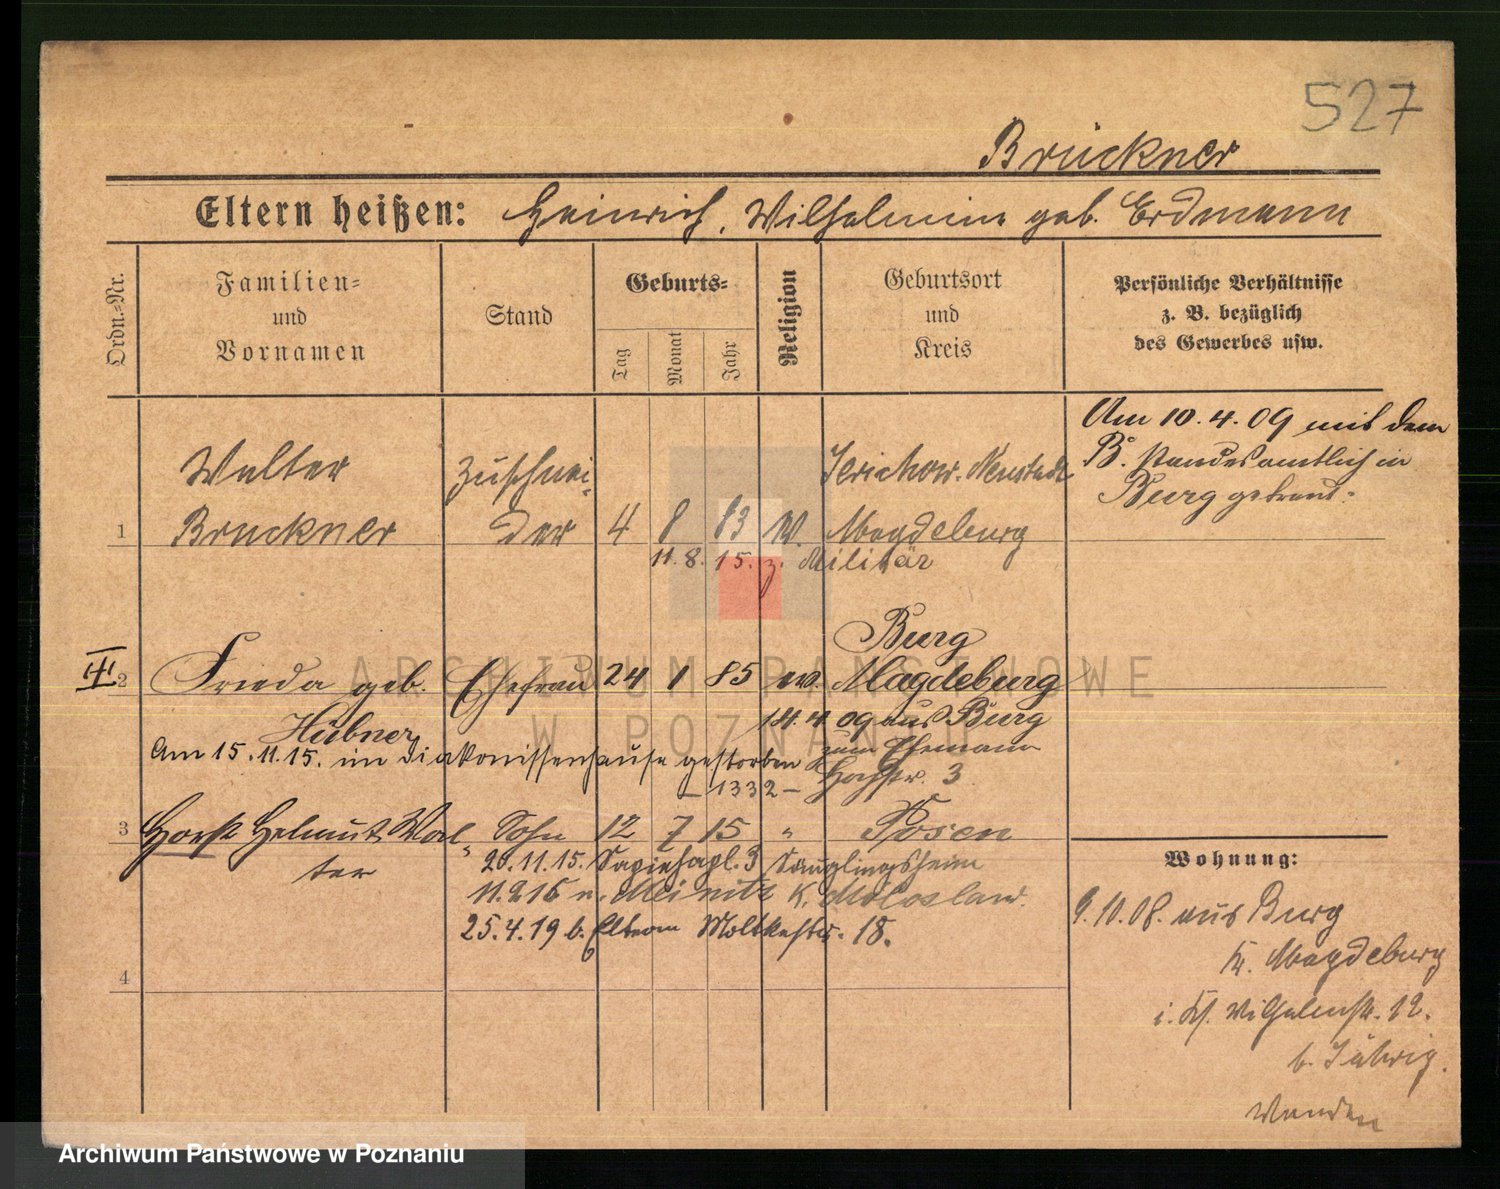 527
Brückner
Eltern heißen: Heinrich, Wilhelmine geb. Erdmann
Ordn.-Nr.
Familien-
und
Vornamen
Stand
Geburts-
Tag
Monat
Jahr
Religion
Geburtsort
und
Kreis
Persönliche Verhältnisse
z. B. bezüglich
des Gewerbes usw.
Am 10.4.09 mit dem
B. standesamtlich in
Burg getraut.
Walter Zuschnei- Jerichow. Neustadt
1 Brückner der 4 8 83 Magdeburg
11.8.15. z. Militär
Burg
2 Frieda geb. Ehefrau 24 1 85 ev. Magdeburg
Hübner 14.4.09 aus Burg
Am 15.11.15. im Diakonissenhause gestorben zum Ehemann
-1332- Hochstr. 3
3 Horst Helmut Wal- Sohn 12 7 15 " Posen
ter 20.11.15. Säuglingsheim
11.2.16 n. K.
25.4.19 b. Eltern Moltkestr. 18.
4
Wohnung:
9.10.08. aus Burg
Kr. Magdeburg
12.
b.
ARCHIWUM PAŃSTWOWE
W POZNANIU
Archiwum Państwowe w Poznaniu